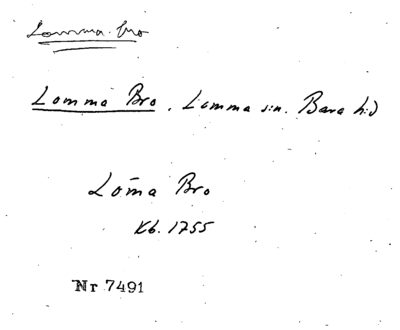 Lomma Bro
Lomma Bro, Lomma sn. Bara hd
Lōma Bro
Kb. 1755
Nr 7491